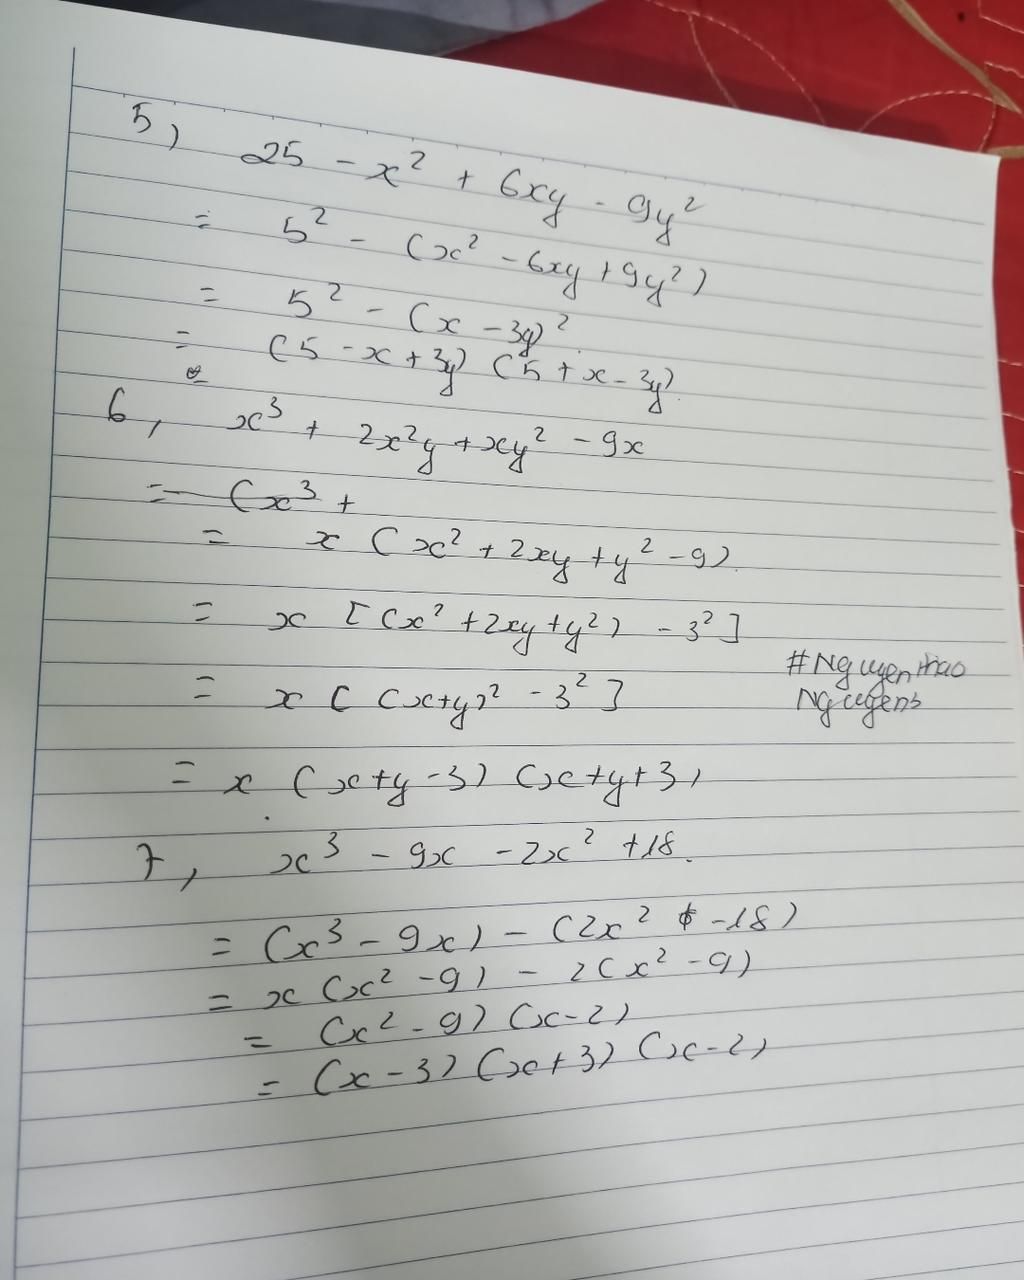 5)
25 - x² + 6xy - 9y²
= 5² - (x² - 6xy + 9y²)
= 5² - (x - 3y)²
= (5 - x + 3y) (5 + x - 3y)
6, x³ + 2x²y + xy² - 9x
= (x³ +
= x (x² + 2xy + y² - 9)
= x [(x² + 2xy + y²) - 3²]
= x [ (x+y)² - 3² ]
#Nguyenthao
Nguyens
= x (x+y-3) (x+y+3)
7, x³ - 9x - 2x² + 18.
= (x³ - 9x) - (2x² - 18)
= x (x² - 9) - 2(x² - 9)
= (x² - 9) (x-2)
= (x-3) (x+3) (x-2)